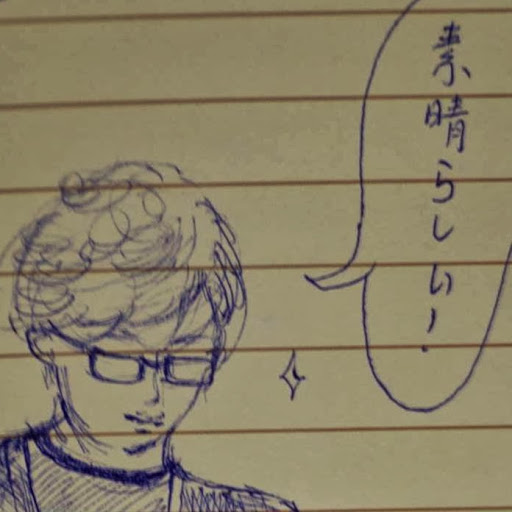 素晴らしい!